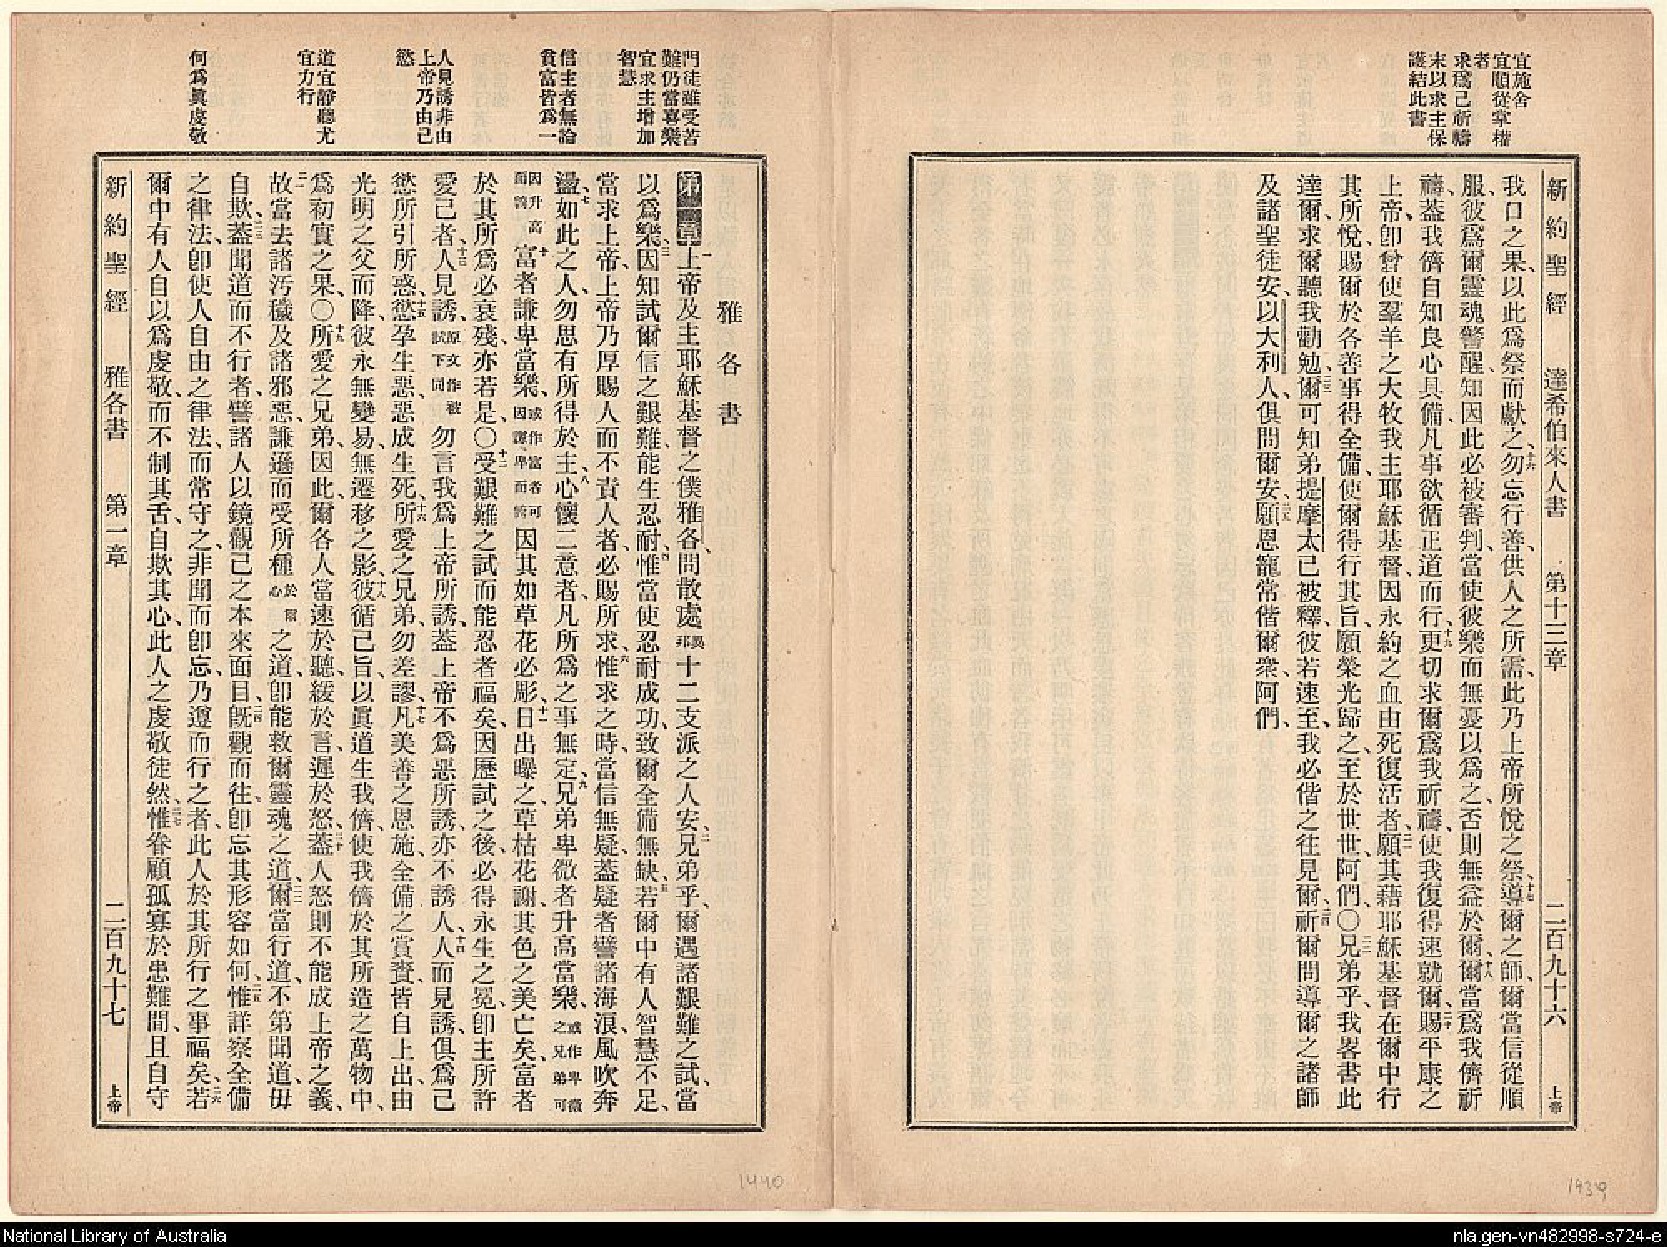 宜施舍
宜順從掌權
者
求爲己祈禱
末以求主保
護結此書
新約聖經 達希伯來人書 第十三章 二百九十六 上帝
我口之果、以此爲祭而獻之、十六勿忘行善、供人之所需、此乃上帝所悅之祭、十七導爾之師、爾當信從順
服、彼爲爾靈魂警醒、知因此必被審判、當使彼樂而無憂、以爲之、否則無益於爾、十八爾當爲我儕祈
禱、蓋我儕自知良心具備、凡事欲循正道而行、十九更切求爾爲我祈禱、使我復得速就爾、二十賜平康之
上帝、卽曾使羣羊之大牧我主耶穌基督、因永約之血由死復活者、二一願其藉耶穌基督在爾中行
其所悅、賜爾於各善事得全備、使爾得行其旨、願榮光歸之、至於世世、阿們、〇二二兄弟乎、我畧書此
達爾、求爾聽我勸勉、二三爾可知弟提摩太已被釋、彼若速至、我必偕之往見爾、二四祈爾問導爾之諸師
及諸聖徒安、以大利人、俱問爾安、二五願恩寵常偕爾衆、阿們、
門徒雖受苦
難仍當喜樂
宜求主增加
智慧
信主者無論
貧富皆爲一
人見誘非由
上帝乃由己
慾
道宜靜聽尤
宜力行
何爲眞虔敬
雅各書
第一章 一上帝及主耶穌基督之僕雅各、問散處異邦十二支派之人安、二兄弟乎、爾遇諸艱難之試、當
以爲樂、三因知試爾信之艱難、能生忍耐、四惟當使忍耐成功、致爾全備無缺、五若爾中有人智慧不足、
當求上帝、上帝乃厚賜人而不責人者、必賜所求、六惟求之時、當信無疑、蓋疑者譬諸海浪、風吹奔
盪、七如此之人、勿思有所得於主、八心懷二意者、凡所爲之事無定、九兄弟卑微者、升高當樂、或作卑微之兄弟可
因升高而誇 十富者謙卑當樂、或作富者可因謙卑而誇 因其如草花必彫、十一日出曝之、草枯花謝、其色之美亡矣、富者
於其所爲必衰殘、亦若是、〇十二受艱難之試而能忍者福矣、因歷試之後、必得永生之冕、卽主所許
愛己者、十三人見誘、原文作被試下同 勿言我爲上帝所誘、蓋上帝不爲惡所誘、亦不誘人、十四人而見誘、俱爲己
慾所引所惑、十五慾孕生惡、惡成生死、十六所愛之兄弟、勿差謬、十七凡美善之恩施、全備之賞賚、皆自上出、由
光明之父而降、彼永無變易、無遷移之影、十八彼循己旨、以眞道生我儕、使我儕於其所造之萬物中、
爲初實之果、〇十九所愛之兄弟、因此、爾各人當速於聽、緩於言、遲於怒、二十蓋人怒則不能成上帝之義、
二一故當去諸汚穢及諸邪惡、謙遜而受所種於爾心之道、卽能救爾靈魂之道、二二爾當行道、不第聞道、毋
自欺、二三蓋聞道而不行者、譬諸人以鏡觀己之本來面目、二四旣觀而往、卽忘其形容如何、二五惟詳察全備
之律法、卽使人自由之律法、而常守之、非聞而卽忘、乃遵而行之者、此人於其所行之事福矣、二六若
爾中有人自以爲虔敬、而不制其舌、自欺其心、此人之虔敬徒然、二七惟眷顧孤寡於患難間、且自守
新約聖經 雅各書 第一章 二百九十七 上帝
1440
1439
National Library of Australia
nla.gen-vn482998-s724-e